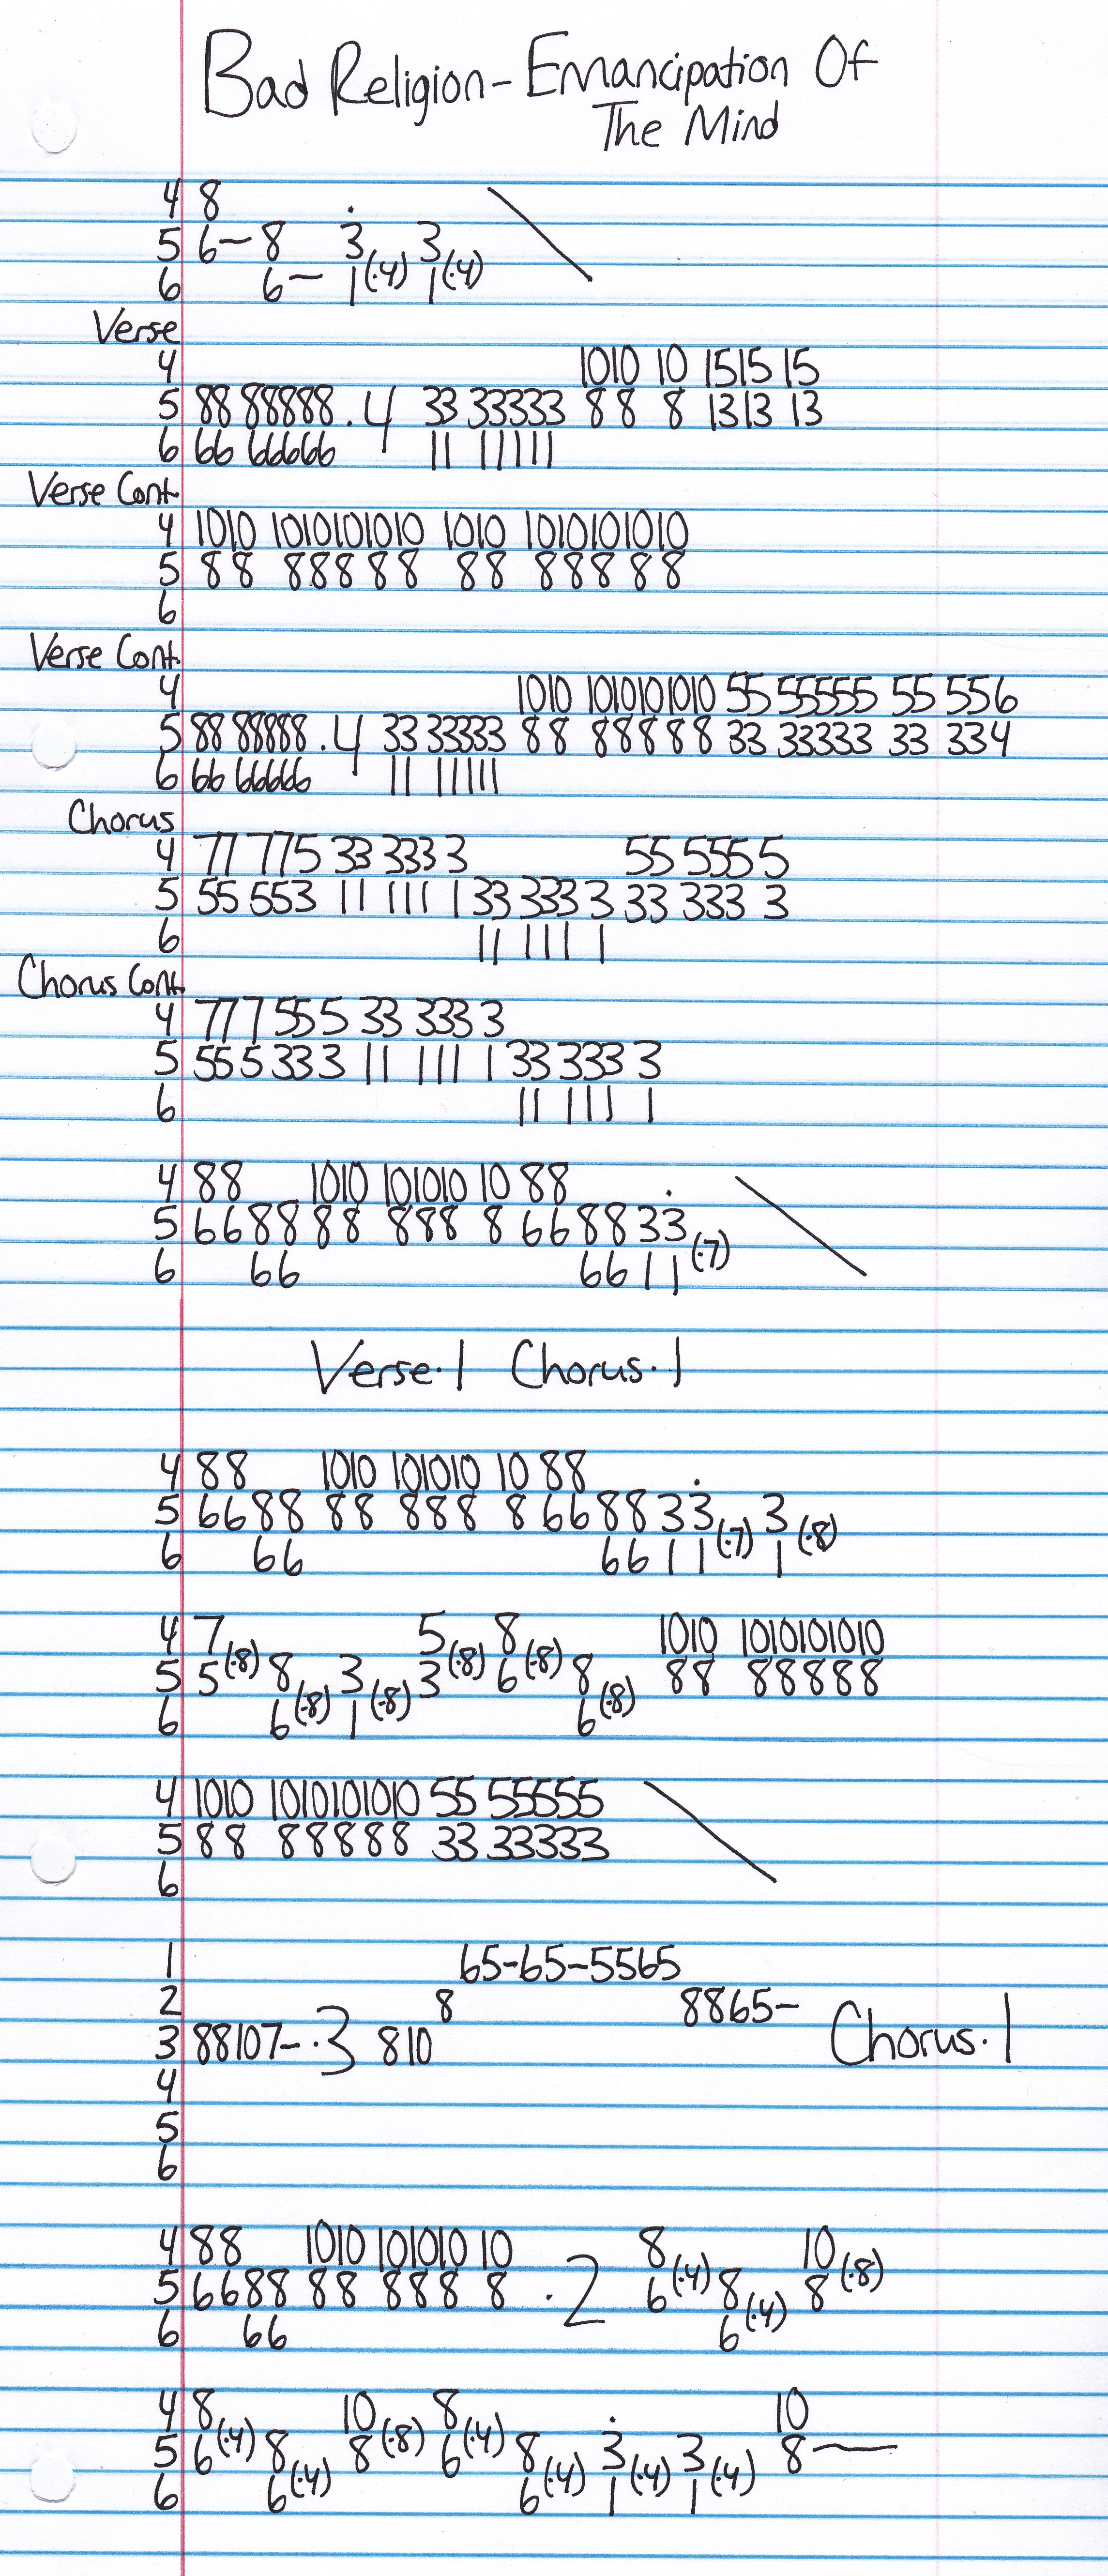 Bad Religion - Emancipation Of
The Mind
4 8
5 6— 8 3̇ 3
6 6— 1(·4) 1(·4)
Verse
4 1010 10 1515 15
5 88 88888 .4 33 33333 88 8 1313 13
6 66 66666 11 11111
Verse Cont.
4 1010 1010101010 1010 101010101010
5 88 88888 88 88888
6
Verse Cont.
4 1010 1010101010 55 55555 55 556
5 88 88888 .4 33 33333 88 88888 33 33333 33 334
6 66 66666 11 11111
Chorus
4 77 775 33 333 3 55 555 5
5 55 553 11 111 1 33 333 3 33 333 3
6 11 111 1
Chorus Cont.
4 777 555 33 333 3
5 555 333 11 111 1 33 333 3
6 11 111 1
4 88 1010 101010 10 88
5 6688 88 888 8 668833̇
6 66 6611 (·7)
Verse·1 Chorus·1
4 88 1010 101010 10 88
5 6688 88 888 8 668833̇ 3
6 66 6611 (·7) 1 (·8)
4 7 5 8 1010 1010101010
5 5(·8) 8 3 3(·8) 6(·8) 8 88 88888
6 6(·8) 1(·8) 6(·8)
4 1010 1010101010 55 55555
5 88 88888 33 33333
6
1 65-65-5565
2 8 8865-
3 88107-·3 810 Chorus·1
4
5
6
4 88 1010 101010 10 8 10
5 6688 88 888 8 .2 6(·4) 8 8(·8)
6 66 6(·4)
4 8 10 8 10
5 6(·4) 8 8(·8) 6(·4) 8 3̇ 3 8—
6 6(·4) 6(·4) 1(·4) 1(·4)